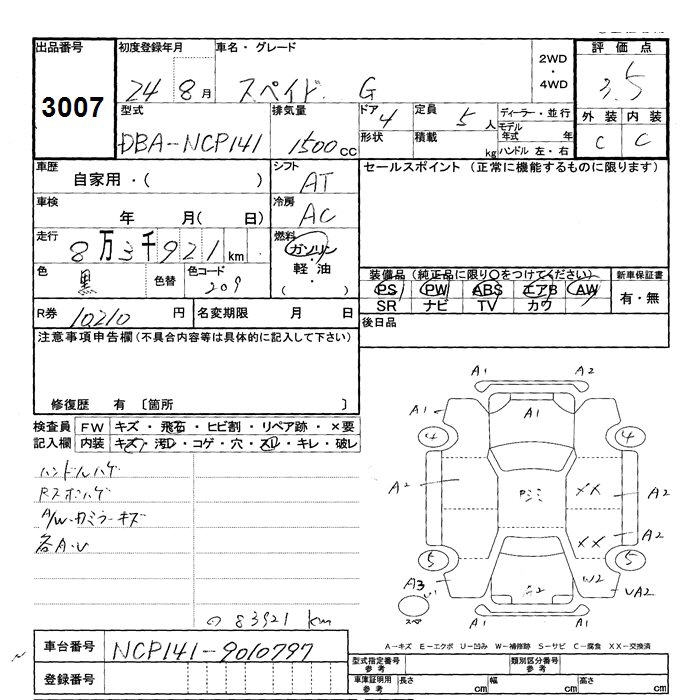 出品番号 初度登録年月 車名・グレード 2WD・4WD 評価点
3007 24 8月 スペイド G 3.5
型式 排気量 ドア 定員 ディーラー・並行 外装 内装
DBA-NCP141 1500cc 4 5人 モデル年式 年 C C
形状 積載 kg ハンドル 左・右
車歴 シフト セールスポイント (正常に機能するものに限ります)
自家用・( ) AT
車検 冷房
年 月( 日) AC
走行 燃料
8万3千921km ガソリン・軽油・( )
色 色替 色コード 装備品(純正品に限り○をつけてください) 新車保証書
黒 209 PS PW ABS エアB AW 有・無
SR ナビ TV カワ
R券 10210円 名変期限 月 日 後日品
注意事項申告欄(不具合内容等は具体的に記入して下さい)
修復歴 有 〔箇所 〕
検査員 FW キズ・飛石・ヒビ割・リペア跡・×要
記入欄 内装 キズ・汚レ・コゲ・穴・スレ・キレ・破レ
ハンドルハゲ
A/W・カミラーキズ
各A・U
83921 km
A1 A2
A1 A1 A1
4 4
A2 XX A2
XX A2
5 5
A3 W2 UA2
A2
A1 A1
A-キズ E-エクボ U-凹み W-補修跡 S-サビ C-腐食 XX-交換済
車台番号 NCP141-9010797
登録番号
型式指定番号 参考 類別区分番号 参考
車庫証明用 参考 長さ cm 幅 cm 高さ cm